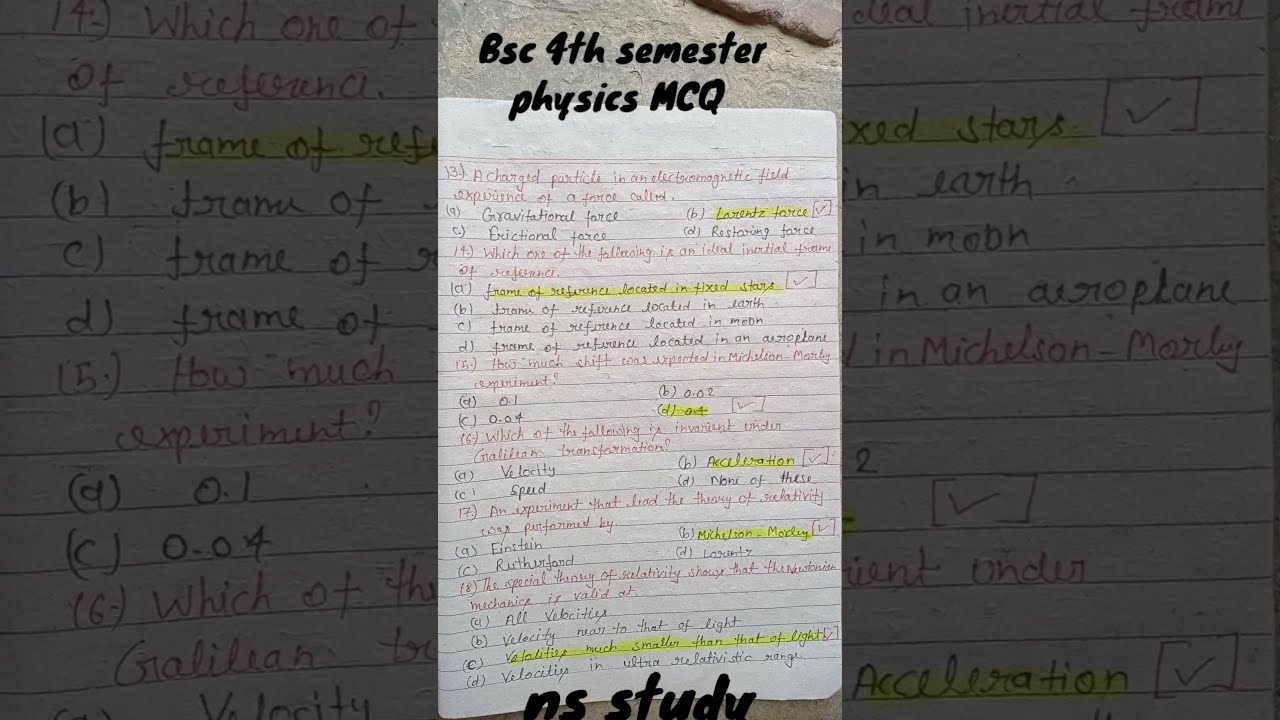 Bsc 4th semester
physics MCQ
13.) A charged particle in an electromagnetic field
experience of a force called.
(a) Gravitational force (b) Lorentz force
c) Frictional force (d) Restoring force
14.) Which one of the following is an ideal inertial frame
of reference.
(a) frame of reference located in fixed stars.
(b) frame of reference located in earth.
c) frame of reference located in moon
d) frame of reference located in an aeroplane
15.) How much shift was expected in Michelson-Morley
experiment?
(a) 0.1 (b) 0.02
(c) 0.04 (d) 0.4
16.) Which of the following is invarient under
Galilean transformation?
(a) Velocity (b) Acceleration
(c) Speed (d) None of these
17.) An experiment that lead the theory of relativity
was performed by.
(a) Einstein (b) Michelson-Morley
(c) Rutherford (d) Lorentz
18.) The special theory of relativity shows that the Newtonian
mechanics is valid at.
(a) All Velocities
(b) Velocity near to that of light
(c) Velolities much smaller than that of light
(d) Velocities in ultra relativistic range.
ns study
14.) Which one of
deal inertial frame
of reference.
(a) frame of refe
xed stars.
(b) frame of
in earth
c) frame of r
in moon
d) frame of
in an aeroplane
15.) How much
in Michelson-Morley
experiment?
(a) 0.1
2
(c) 0.04
16.) Which of the
rient under
Galilean tr
Acceleration
(a) Velocity